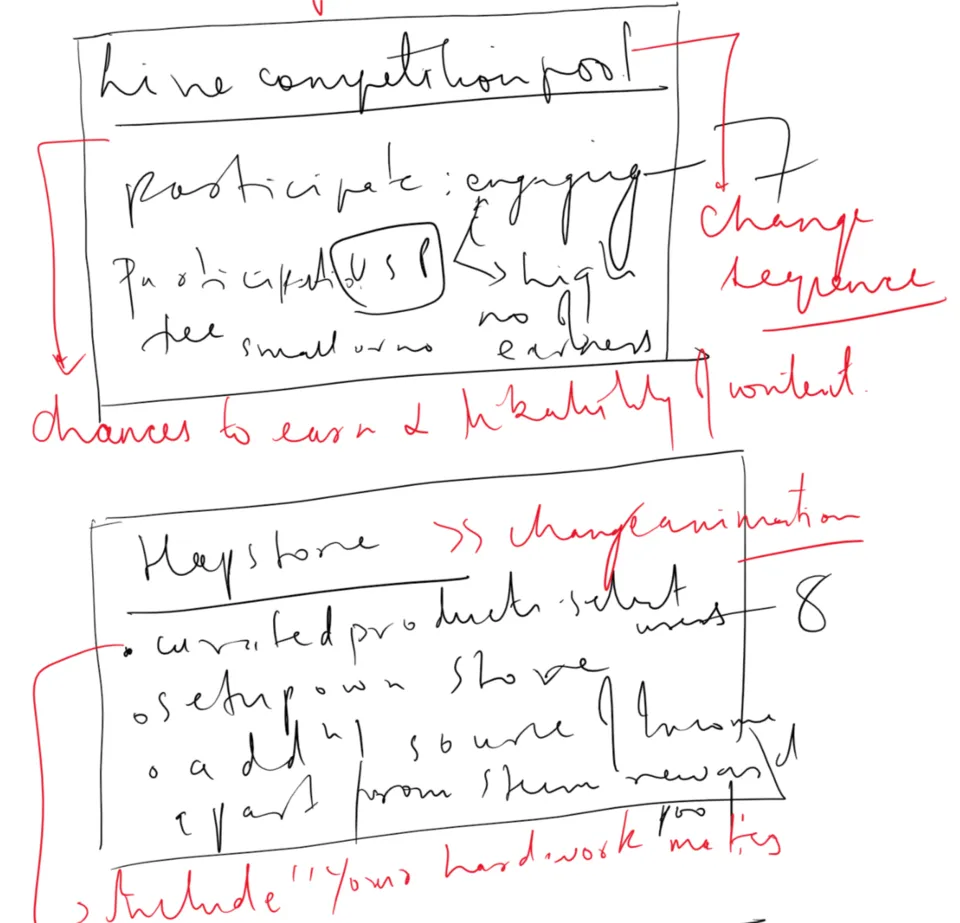 Live competition pool
participate : engaging 7
change
sequence
Participation USP > high
fee small or no no of earners
chances to earn & likability of content.
Hapstore >> change animation
• curated products select users 8
• setup own store
• add nl source of Income
apart from stem reward pool
> Include "Your hardwork matters